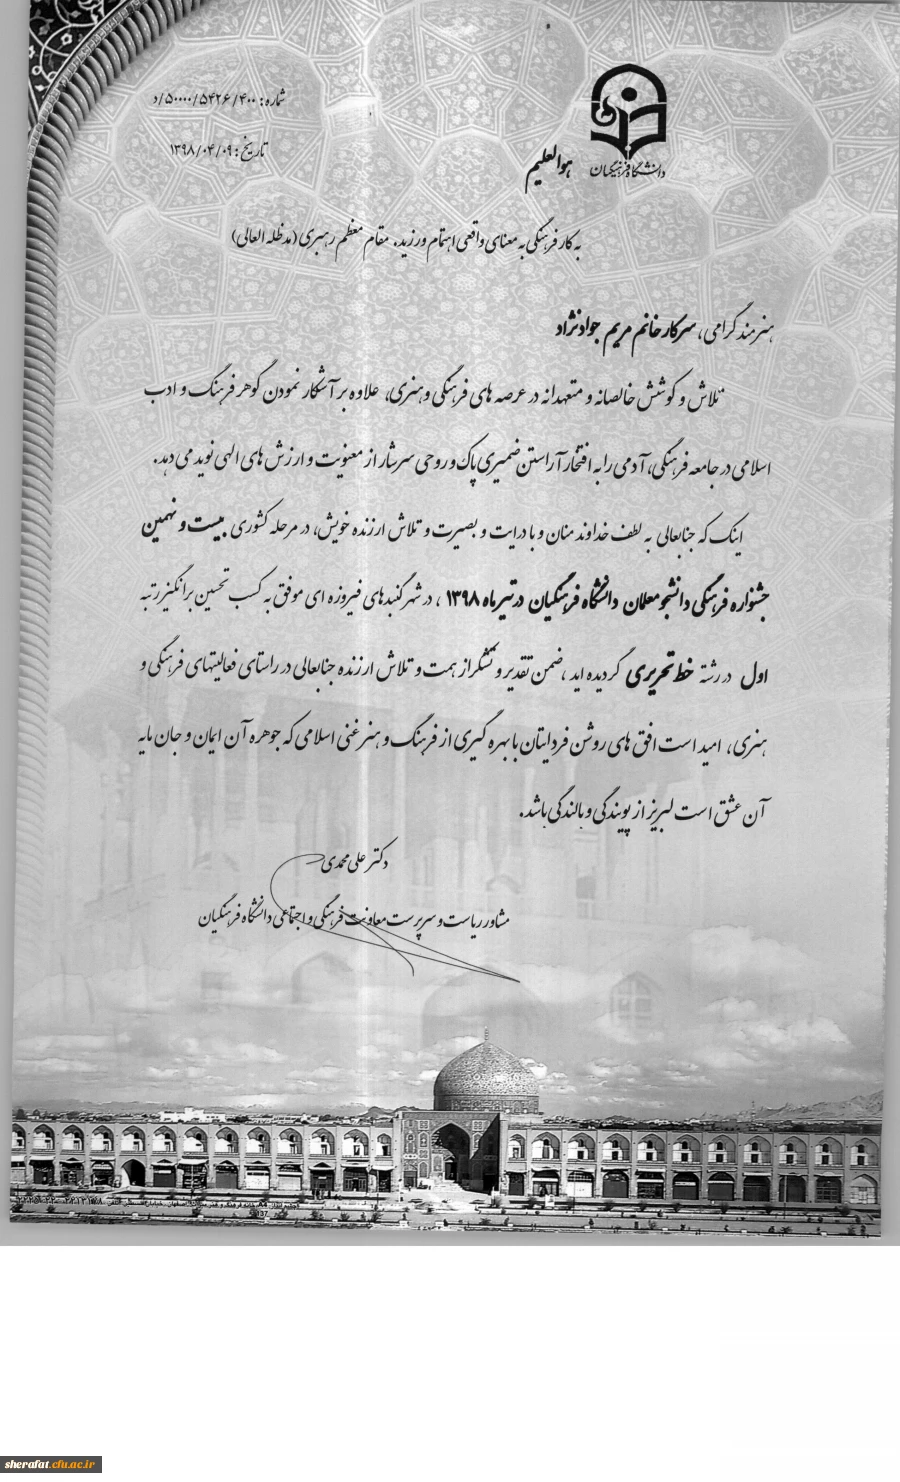 شماره: ۵۰۰۰۰/۵۴۲۶/۴۰۰/د
تاریخ: ۱۳۹۸/۰۴/۰۹
دانشگاه فرهنگیان
هوالعلیم
به کار فرهنگی به معنای واقعی اهتمام ورزید. مقام معظم رهبری (مدظله العالی)
هنرمند گرامی، سرکار خانم مریم جوادنژاد
تلاش و کوشش خالصانه و متعهدانه در عرصه های فرهنگی و هنری، علاوه بر آشکار نمودن گوهر فرهنگ و ادب
اسلامی در جامعه فرهنگی، آدمی را به افتخار آراستن ضمیری پاک و روحی سرشار از معنویت و ارزش های الهی نوید می دهد.
اینک که جنابعالی به لطف خداوند منان و با درایت و بصیرت و تلاش ارزنده خویش، در مرحله کشوری بیست و نهمین
جشنواره فرهنگی دانشجو معلمان دانشگاه فرهنگیان در تیرماه ۱۳۹۸، در شهر گنبدهای فیروزه ای موفق به کسب تحسین برانگیز رتبه
اول در رشته خط تحریری گردیده اید، ضمن تقدیر و تشکر از همت و تلاش ارزنده جنابعالی در راستای فعالیتهای فرهنگی و
هنری، امید است افق های روشن فردایتان با بهره گیری از فرهنگ و هنر غنی اسلامی که جوهره آن ایمان و جان مایه
آن عشق است لبریز از پویندگی و بالندگی باشد.
دکتر علی محمدی
مشاور ریاست و سرپرست معاونت فرهنگی و اجتماعی دانشگاه فرهنگیان
sherafat.cfu.ac.ir